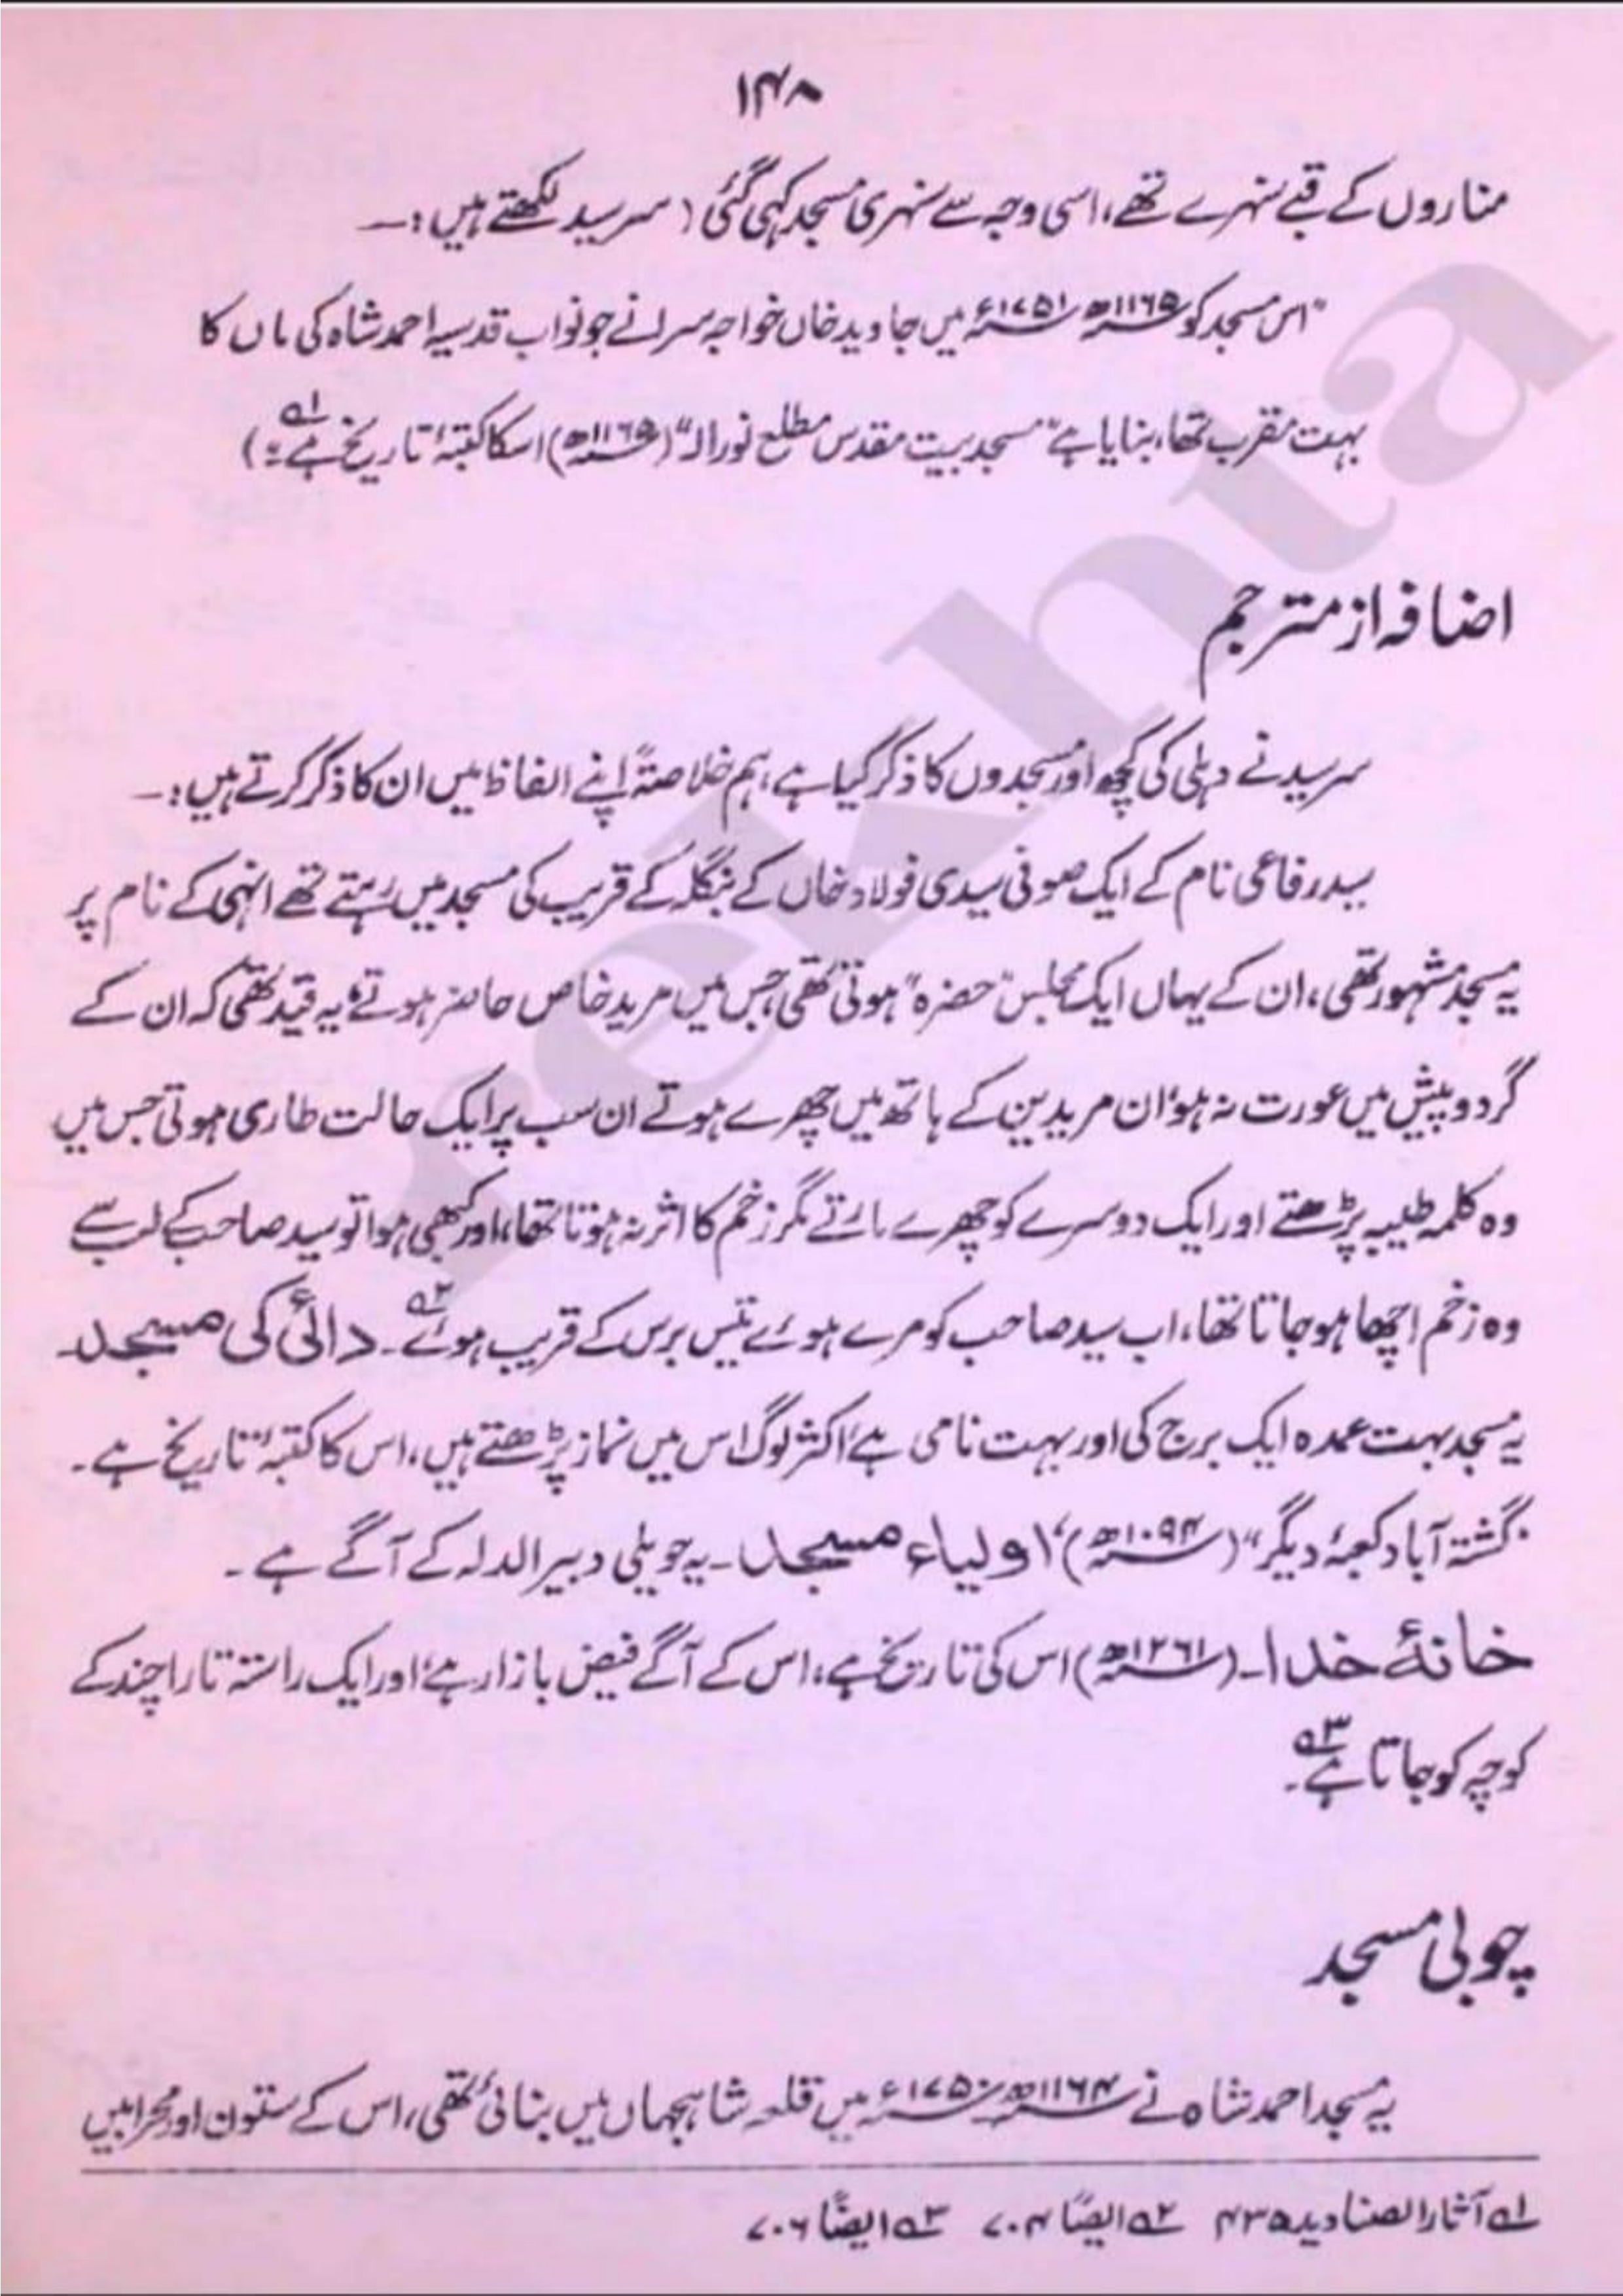 ۱۴۸
مناروں کے قبے سنہرے تھے، اسی وجہ سے سنہری مسجد کہی گئی (سرسید لکھتے ہیں:—
"اس مسجد کو ۱۱۶۵ھ ۱۷۵۱ء میں جاوید خاں خواجہ سرا نے جو نواب قدسیہ احمد شاہ کی ماں کا
بہت مقرب تھا، بنایا ہے "مسجد بیت مقدس مطلع نور الہ" (۱۱۶۵ھ) اسکا کتبۂ تاریخ ہے لہ۱؎)
اضافہ از مترجم
سرسید نے دہلی کی کچھ اور مسجدوں کا ذکر کیا ہے، ہم خلاصتہً اپنے الفاظ میں ان کا ذکر کرتے ہیں:—
سید رفاعی نام کے ایک صوفی سیدی فولاد خاں کے بنگلہ کے قریب کی مسجد میں رہتے تھے انہی کے نام پر
یہ مسجد مشہور تھی، ان کے یہاں ایک مجلس "حضرہ" ہوتی تھی جس میں مرید خاص حاضر ہوتے، یہ قید تھی کہ ان کے
گرد و پیش میں عورت نہ ہو، ان مریدین کے ہاتھ میں چھرے ہوتے ان سب پر ایک حالت طاری ہوتی جس میں
وہ کلمہ طیبہ پڑھتے اور ایک دوسرے کو چھرے مارتے مگر زخم کا اثر نہ ہوتا تھا، اور کبھی ہوا تو سید صاحب کے لب سے
وہ زخم اچھا ہو جاتا تھا، اب سید صاحب کو مرے ہوئے تیس برس کے قریب ہوئے ۲؎۔ دائی کی مسجد۔
یہ مسجد بہت عمدہ ایک برج کی اور بہت نامی ہے، اکثر لوگ اس میں نماز پڑھتے ہیں، اس کا کتبۂ تاریخ ہے۔
"گشتہ آباد کعبۂ دیگر" (۱۰۹۴ھ)، اولیاء مسجد۔ یہ حویلی دبیر الدلہ کے آگے ہے۔
خانۂ خدا۔ (۱۲۶۱ھ) اس کی تاریخ ہے، اس کے آگے فیض بازار ہے، اور ایک راستہ تارا چند کے
کوچہ کو جاتا ہے ۳؎۔
چوبی مسجد
یہ مسجد احمد شاہ نے ۱۱۶۴ھ ۱۷۵۰ء میں قلعہ شاہجہاں میں بنائی تھی، اس کے ستون اور محرابیں
۱؎ آثار الصنادید ۴۳۵ ۲؎ ایضاً ۷۰۴ ۳؎ ایضاً ۷۰۶
rekhta